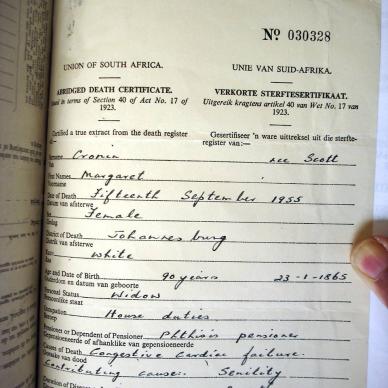 Nº 030328
UNION OF SOUTH AFRICA.
UNIE VAN SUID-AFRIKA.
ABRIDGED DEATH CERTIFICATE.
VERKORTE STERFTESERTIFIKAAT.
Issued in terms of Section 40 of Act No. 17 of
1923.
Uitgereik kragtens artikel 40 van Wet No. 17 van
1923.
Certified a true extract from the death register
of—
Gesertifiseer 'n ware uittreksel uit die sterfte-
register van:—
Surname Cronin nee Scott
Van
First Names Margaret
Voorname
Date of Death Fifteenth September 1955
Datum van afsterwe
Sex Female
District of Death Johannesburg
Distrik van afsterwe
Race White
Ras
Age and Date of Birth 90 years 23-1-1865
Ouderdom en datum van geboorte
Personal Status Widow
Persoonlike staat
Occupation House duties
Beroep
Pensioner or Dependent of Pensioner Phthisis pensioner
Gepensioeneerde of afhanklike van gepensioeneerde
Causes of Death Congestive cardiac failure.
Oorsake van dood
Contributing cause: Senility
Duration of Disease